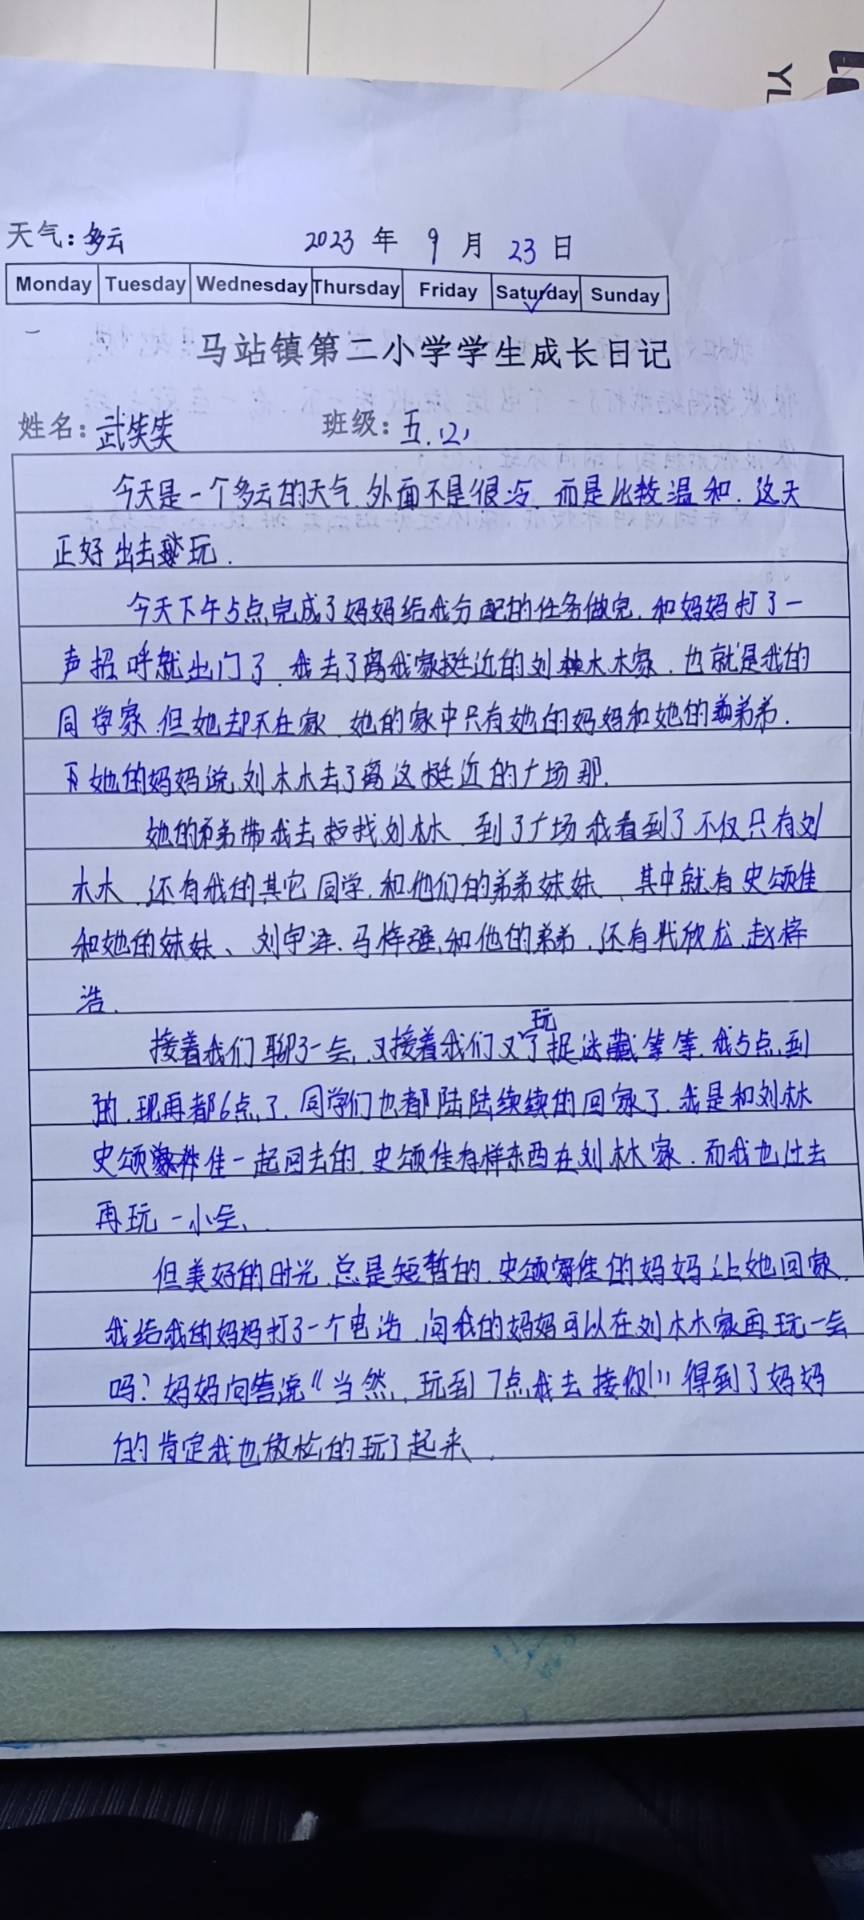 YL
天气:多云 2023 年 9 月 23 日
Monday Tuesday Wednesday Thursday Friday Saturday Sunday
马站镇第二小学学生成长日记
姓名:武笑笑 班级:五.(2)
今天是一个多云的天气.外面不是很冷.而是比较温和.这天
正好出去玩.
今天下午5点完成了妈妈给我分配的任务做完.和妈妈打了一
声招呼就出门了.我去了离我家挺近的刘木木家.也就是我的
同学家.但她却不在家.她的家中只有她的妈妈和她的弟弟.
她的妈妈说.刘木木去了离这挺近的广场那.
她的弟弟带我去找刘木木.到了广场我看到了不仅只有刘
木木.还有我的其它同学.和他们的弟弟妹妹.其中就有史颂佳
和她的妹妹、刘宇.马梓.和他的弟弟.还有欣龙.赵梓
浩.
接着我们聊了一会.又接着我们又玩了捉迷藏等等.我5点到
的.现再都6点了.同学们也都陆陆续续的回家了.我是和刘木木
史颂佳一起回去的.史颂佳有样东西在刘木木家.而我也过去
再玩一小会.
但美好的时光.总是短暂的.史颂佳的妈妈让她回家.
我给我的妈妈打了一个电话.问我的妈妈可以在刘木木家再玩一会
吗?妈妈向答说《当然.玩到7点我去接你!》得到了妈妈
的肯定我也放松的玩了起来.